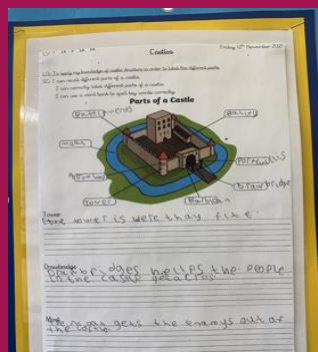 Castles
Friday 12th November 2021
L.O. To apply my knowledge of castle structure in order to label the different parts.
SC: I can recall different parts of a castle.
I can correctly label different parts of a castle.
I can use a word bank to spell key words correctly.
Parts of a Castle
Bailey
moat
Portcullis
drawbridge
Tower
Tower
the tower is were thay fite
Drawbridge
Drawbridges hellps the People
in the casle get acros
Moat
The moat gets the enamys out of
the castle